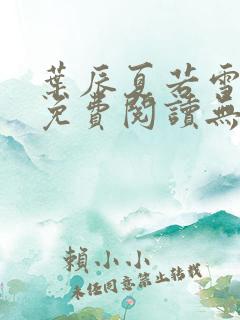 葉辰夏若雪
免費閱讀無
賴小小
未經同意禁止轉載